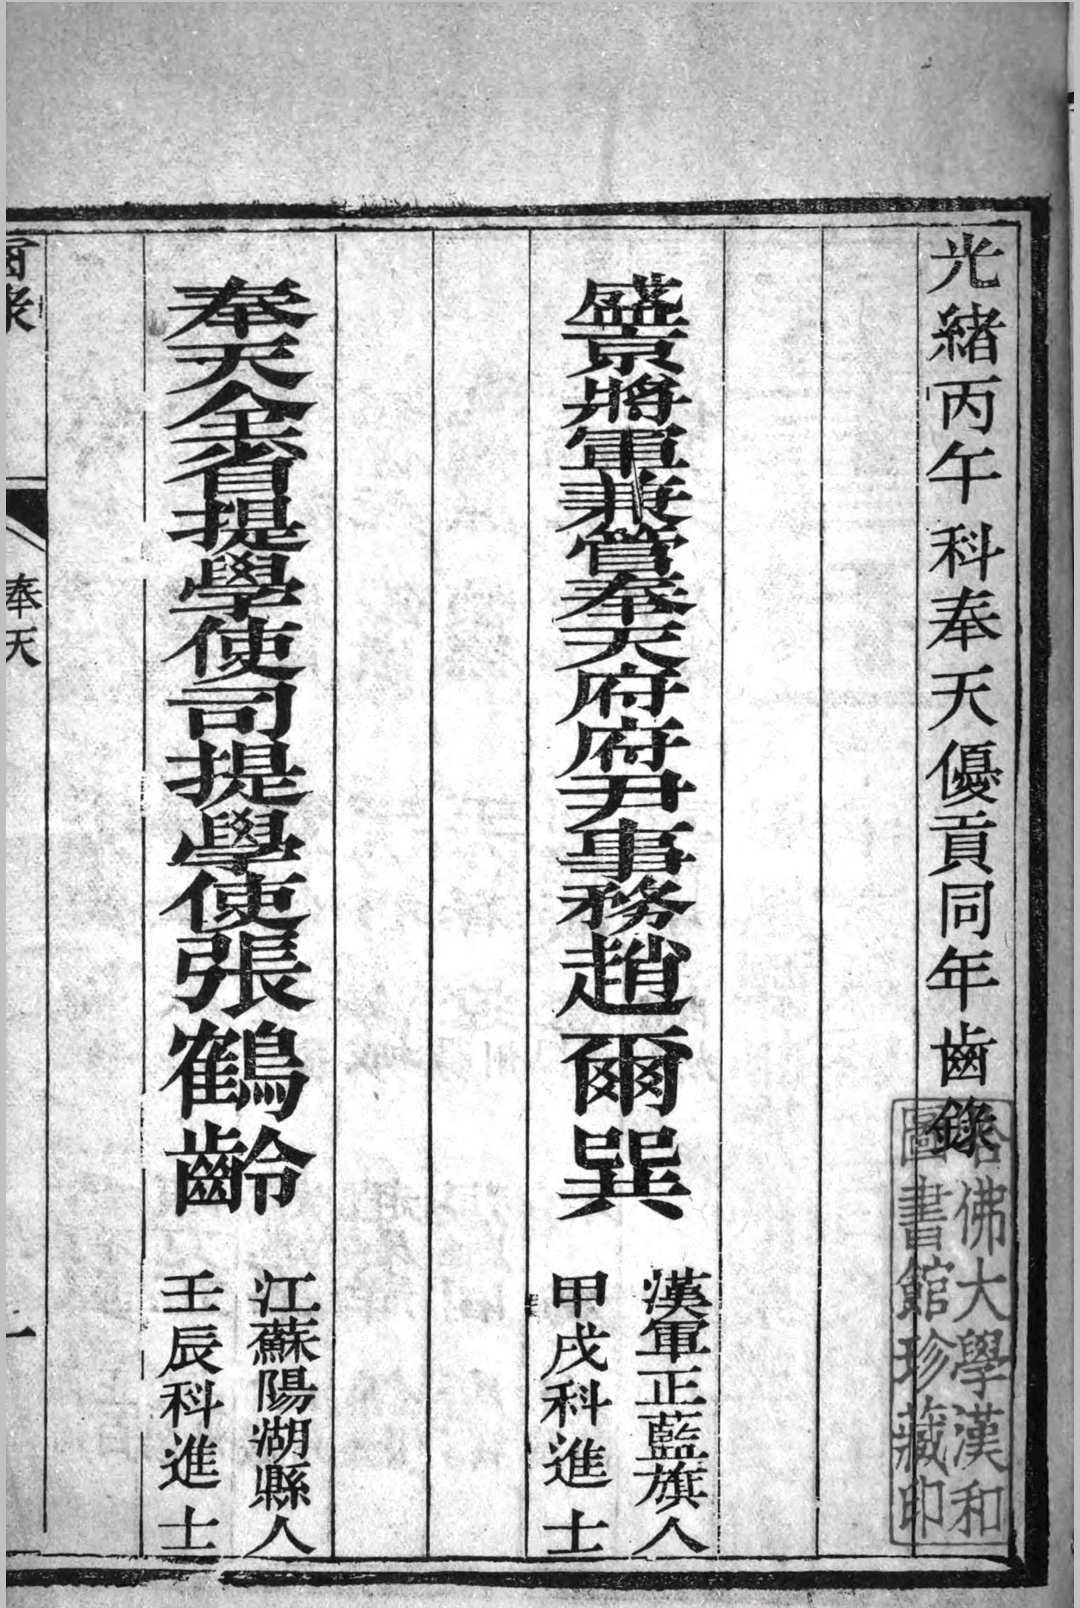 光緒丙午科奉天優貢同年齒錄
哈佛大學漢和
圖書館珍藏印
盛京將軍兼管奉天府府尹事務趙爾巽
漢軍正藍旗人
甲戌科進士
奉天全省提學使司提學使張鶴齡
江蘇陽湖縣人
壬辰科進士
奉天
一